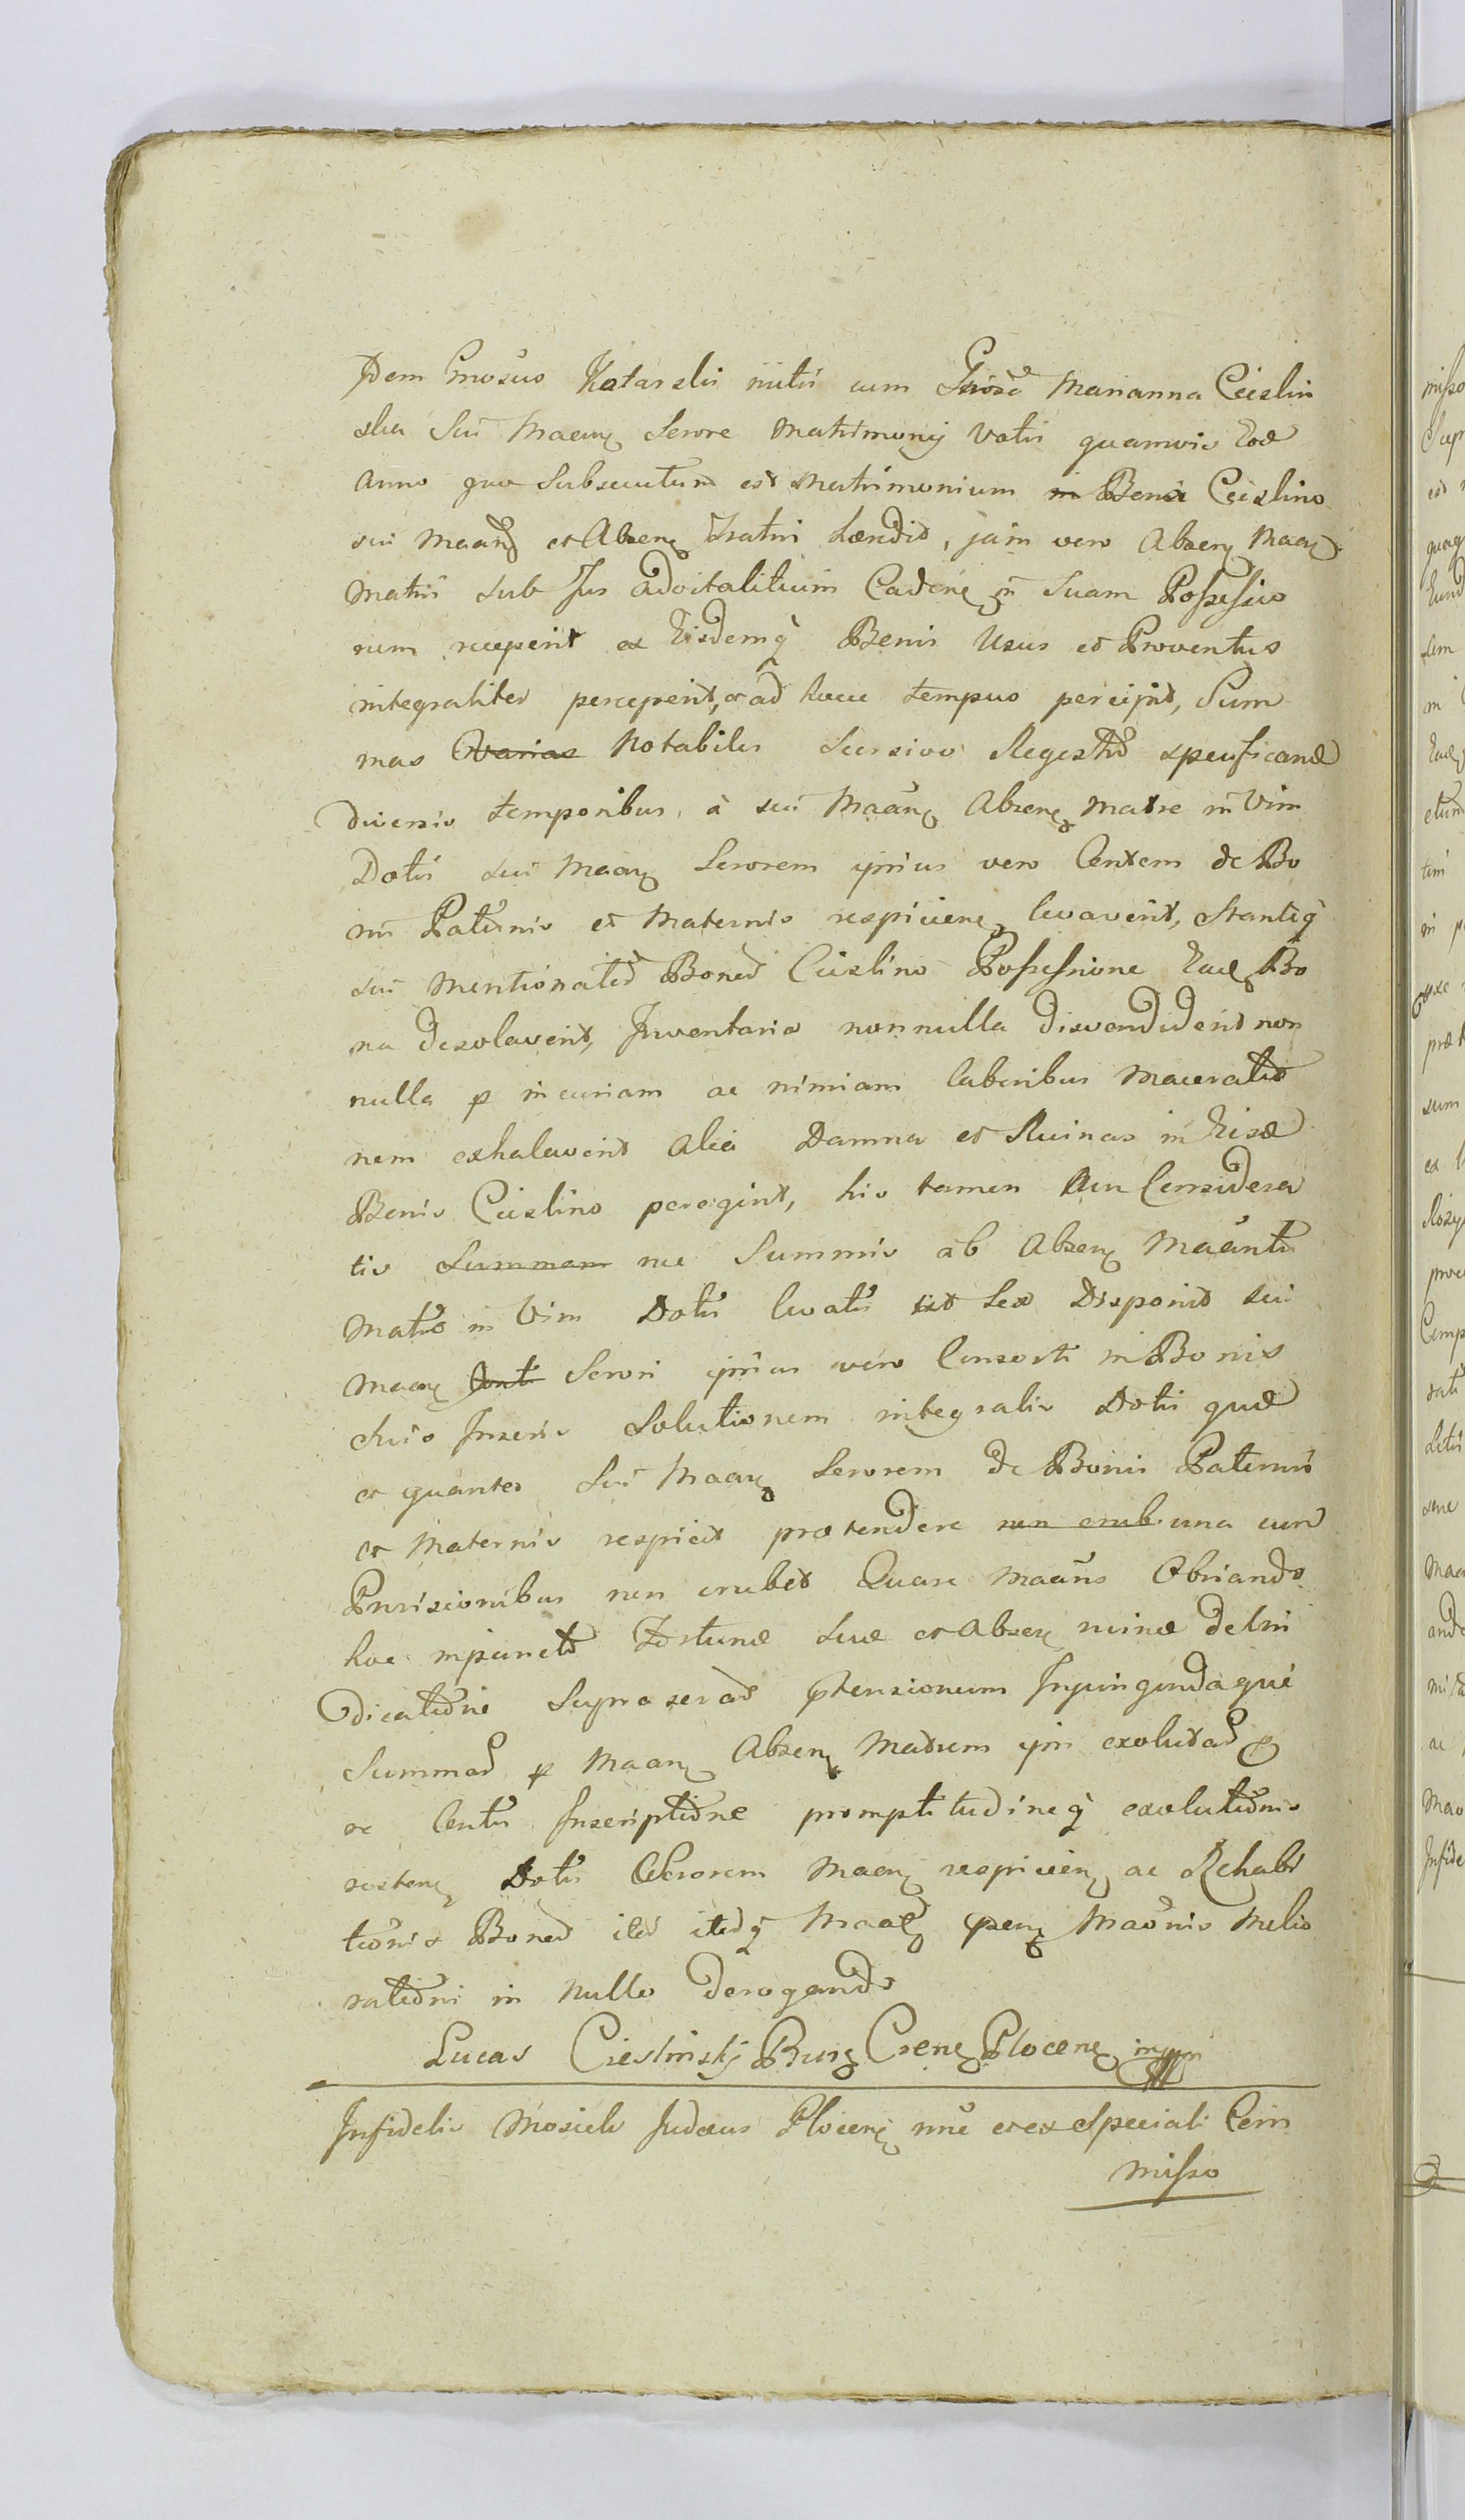 Idem Gnosus Kotarski initis cum Gnosa Marianna Cieslin
ska sui Maaṅ Sorore Matrimonij Votis quamvis Eod
anno quo Subsecutum est Matrimonium in Bona Cieslino
sui Maaṅ et Absen Fratri Locudit, jam vero Absen Maaṅ
Matris sub Jus advitalitium Caden in Suam Possessio
nem receperit ex Eisdemq Bonis Usus et Proventus
integraliter perceperit, et ad hocce tempus percipit, Sum
mas Varias Notabiles Seorsivo Regestro specificand
diversis temporibus, à sui Maaṅ Absen Matre in Vim
Dotis sui Maaṅ Sororem ipsius vero Contem de Bo
nis Paternis et Maternis respicien levaverit, Stanteq
sui mentionator Bonor Cieslino Possessione Eaq Bo
na desolaverit, Inventaria nonnulla disvendiderit non
nulla p incuriam ac nimiam laboribus Maceratio
nem exhalaverit alia Damna et Ruinas in Eisd
Bonis Cieslino peregerit, his tamen non Considera
tis Summam nec Summis ab Absen Maantis
Matre in Vim Dotis levatis sed Sex Disponit sui
Maaṅ Sorori ipsius vero Consorti in Bonis
Suis Inscriᵒ Solutionem integralis Dotis quæ
et quantes sui Maaṅ Sororem de Bonis Paternis
et Maternis respicit prætendere non erub una cum
Provisionibus non erubet Quare Maans Obviando
hoc in puncto Fortunæ Suæ et Absen ruinæ de Ivi
dicatione Suprascrar ptensionum Inpingendaque
Summar p Maaṅ Absen Matrem ipsi exolutar p
ac Contis Inscriptione promptitudineq exolutionis
restan Dotis Sororem Maaṅ respicien ac Rehabi
tionis Bonor iter iterq Maaṅ pten Maonis Melio
rationi in Nullo derogando
Lucas Cieslinskj Burg Cren Plocen mpp
Infidelis Mosiek Judæus Plocen nne et ex Speciali Com
misso